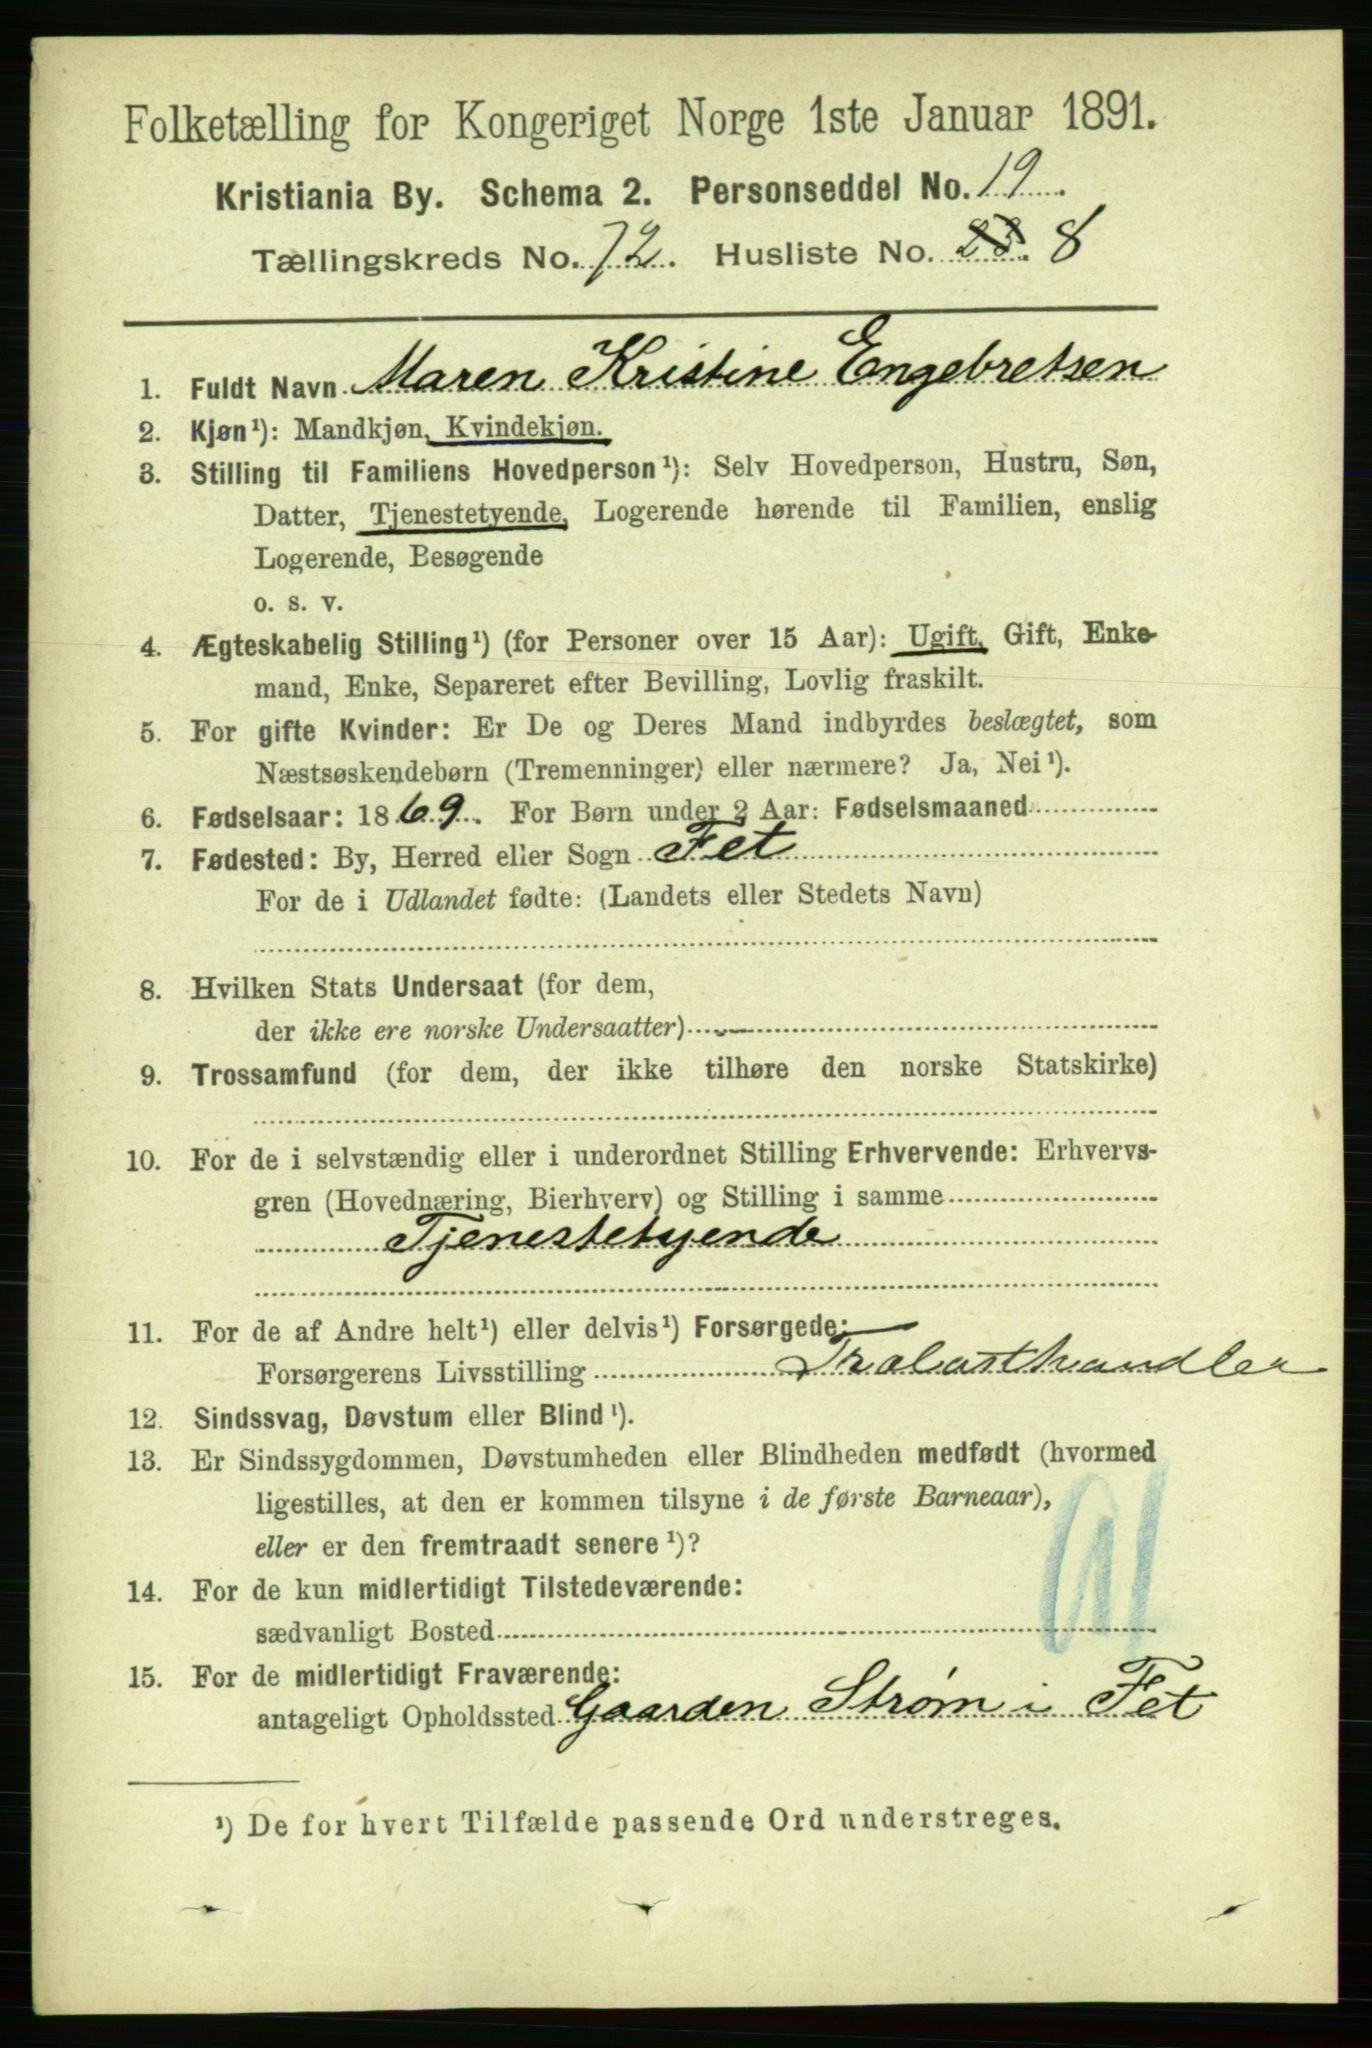 Folketælling for Kongeriget Norge 1ste Januar 1891.
Kristiania By. Schema 2. Personseddel No. 19.
Tællingskreds No. 72. Husliste No. 8
1. Fuldt Navn Maren Kristine Engebretsen
2. Kjøn¹): Mandkjøn, Kvindekjøn.
3. Stilling til Familiens Hovedperson¹): Selv Hovedperson, Hustru, Søn,
Datter, Tjenestetyende, Logerende hørende til Familien, enslig
Logerende, Besøgende
o. s. v.
4. Ægteskabelig Stilling¹) (for Personer over 15 Aar): Ugift, Gift, Enke-
mand, Enke, Separeret efter Bevilling, Lovlig fraskilt.
5. For gifte Kvinder: Er De og Deres Mand indbyrdes beslægtet, som
Næstsøskendebørn (Tremenninger) eller nærmere? Ja, Nei¹).
6. Fødselsaar: 1869. For Børn under 2 Aar: Fødselsmaaned
7. Fødested: By, Herred eller Sogn Fet
For de i Udlandet fødte: (Landets eller Stedets Navn)
8. Hvilken Stats Undersaat (for dem,
der ikke ere norske Undersaatter)
9. Trossamfund (for dem, der ikke tilhøre den norske Statskirke)
10. For de i selvstændig eller i underordnet Stilling Erhvervende: Erhvervs-
gren (Hovednæring, Bierhverv) og Stilling i samme
Tjenestetyende
11. For de af Andre helt¹) eller delvis¹) Forsørgede:
Forsørgerens Livsstilling Trælasthandler
12. Sindssvag, Døvstum eller Blind¹).
13. Er Sindssygdommen, Døvstumheden eller Blindheden medfødt (hvormed
ligestilles, at den er kommen tilsyne i de første Barneaar),
eller er den fremtraadt senere¹)?
14. For de kun midlertidigt Tilstedeværende:
sædvanligt Bosted
15. For de midlertidigt Fraværende:
antageligt Opholdssted Gaarden Strøm i Fet
¹) De for hvert Tilfælde passende Ord understreges.